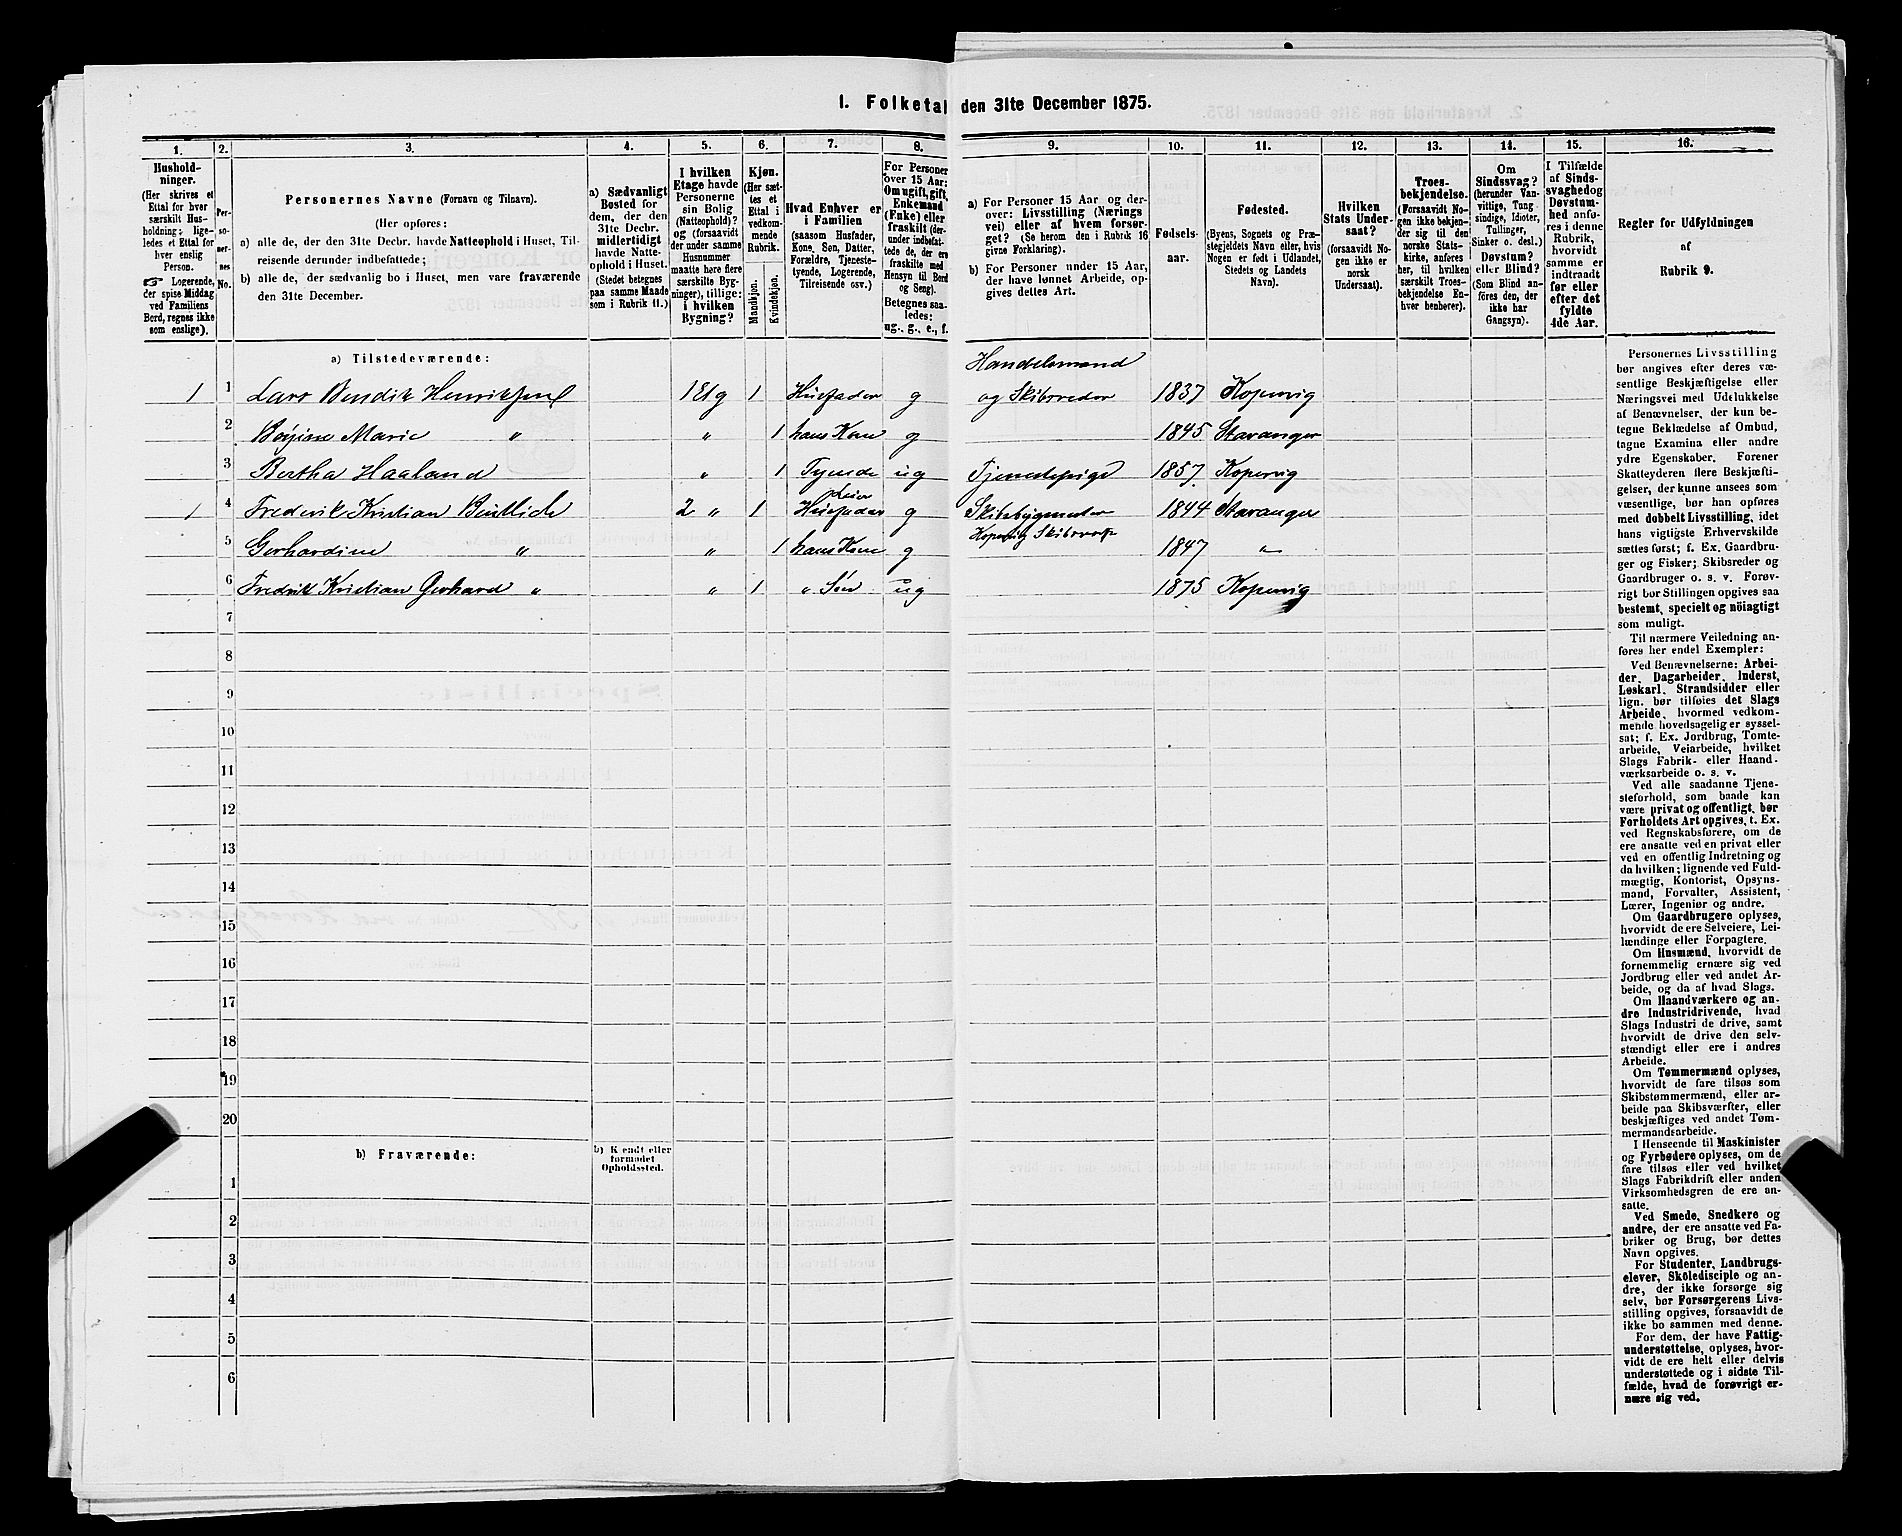 1. Folketal den 31te December 1875.
1. 2. 3. 4. 5. 6. 7. 8. 9. 10. 11. 12. 13. 14. 15. 16.
Hushold-
ninger.
(Her skrives et
Ettal for hver
særskilt Hus-
holdning; lige-
ledes et Ettal for
hver enslig
Person.
☞ Logerende,
der spise Middag
ved Familiens
Bord, regnes ikke
som enslige).
Per-
so-
ner-
nes
No.
Personernes Navne (Fornavn og Tilnavn).
(Her opføres:
a) alle de, der den 31te Decbr. havde Natteophold i Huset, Til-
reisende derunder indbefattede;
b) alle de, der sædvanlig bo i Huset, men vare fraværende
den 31te December.
a) Sædvanligt
Bosted for
dem, der den
31te Decbr.
midlertidigt
havde Natte-
ophold i Huset.
(Stedet betegnes
paa samme Maade
som i Rubrik 11.)
I hvilken
Etage havde
Personerne
sin Bolig
(Natteophold)?
og (forsaavidt
der under samme
Husnummer
maatte høre flere
særskilte Byg-
ninger), tillige:
i hvilken
Bygning?
Kjøn.
(Her sæt-
tes et
Ettal i
vedkom-
mende
Rubrik.
Mandkjøn.
Kvindekjøn.
Hvad Enhver er
i Familien
(saasom Husfader,
Kone, Søn, Datter,
Forældre, Tjeneste-
tyende, Logerende,
Tilreisende osv.)
For Personer
over 15 Aar:
Om ugift, gift,
Enkemand
(Enke) eller
fraskilt (der-
under indbefat-
tede de, der ere
fraskilte med
Hensyn til Bord
og Seng).
Betegnes saa-
ledes:
ug., g., e., f.
a) For Personer 15 Aar og der-
over: Livsstilling (Nærings
vei) eller af hvem forsør-
get? (Se herom den i Rubrik 16
givne Forklaring).
b) For Personer under 15 Aar,
der have lønnet Arbeide, op-
gives dettes Art.
Fødsels-
aar.
Fødested.
(Byens, Sognets og Præ-
stegjeldets Navn eller, hvis
Nogen er født i Udlandet,
Stedets og Landets
Navn).
Hvilken
Stats Under-
saat?
(forsaavidt No-
gen ikke er
norsk
Undersaat).
Troes-
bekjendelse.
(Forsaavidt No-
gen ikke bekjen-
der sig til den
norske Stats-
kirke, anføres
her, til hvilken
særskilt Troes-
bekjendelse En-
hver henhører).
Om
Sindssvag?
(herunder Van-
vittige, Tung-
sindige, Idioter,
Tullinger,
Sinker o. desl.)
Døvstum?
eller Blind?
(Som Blind an-
føres den, der
ikke har
Gangsyn).
I Tilfælde
af Sinds-
svaghed og
Døvstum-
hed anfø-
res i denne
Rubrik,
hvorvidt
samme er
indtraadt
før eller
efter det
fyldte
4de Aar.
Regler for Udfyldningen
af
Rubrik 9.
a) Tilstedeværende:
Handelsmand
1 1 Lars Bendik Henriksen 1 Etg 1 Husfader g og Skibsreder 1837 Kopervig
2 Marie " " 1 hans Kone g 1845 Stavanger
3 Bertha Haaland " 1 Tyende ug Tjenestepige 1857 Kopervig
Leier
1 4 Frederik Kristian Beutlich 2 " 1 Husfader g Skibsbygmester 1844 Stavanger
Kopervig Skibsverft
5 Gerhardine " " 1 hans Kone g 1847 "
6 Fredrik Kristian Gerhard " " 1 " Søn ug 1875 Kopervig
7
8
9
10
11
12
13
14
15
16
17
18
19
20
b) Fraværende:
b) Kjendt eller
formodet
Opholdssted.
1
2
3
4
5
6
Personernes Livsstilling
bør angives efter deres væ-
sentlige Beskjæftigelse eller
Næringsvei med Udelukkelse
af Benævnelser, der kun be-
tegne Beklædelse af Ombud,
tagne Examina eller andre
ydre Egenskaber. Forener
Skatteyderen flere Beskjæfti-
gelser, der kunne ansees som
væsentlige, bør han opføres
med dobbelt Livsstilling, idet
hans vigtigste Erhvervskilde
sættes først; f. Ex. Gaardbru-
ger og Fisker; Skibsreder og
Gaardbruger o. s. v. Forøv-
rigt bør Stillingen opgives saa
bestemt, specielt og nöiagtigt
som muligt.
Til nærmere Veiledning an-
føres her endel Exempler:
Ved Benævnelserne: Arbei-
der, Dagarbeider, Inderst,
Løskarl, Strandsidder eller
lign. bør tilføies det Slags
Arbeide, hvormed vedkom-
mende hovedsagelig er syssel-
sat; f. Ex. Jordbrug, Tomte-
arbeide, Veiarbeide, hvilket
Slags Fabrik- eller Haand-
værksarbeide o. s. v.
Ved alle saadanne Tjene-
steforhold, som baade kan
være privat og offentligt, bør
Forholdets Art opgives, t. Ex.
ved Regnskabsførere, om de
ere ansatte ved en privat eller
ved en offentlig Indretning og
da hvilken; lignende ved Fuld-
mægtig, Kontorist, Opsyns-
mand, Forvalter, Assistent,
Lærer, Ingeniør og andre.
Om Gaardbrugere oplyses,
hvorvidt de ere Selveiere, Lei-
lændinge eller Forpagtere.
Om Husmænd, hvorvidt de
fornemmelig ernære sig ved
Jordbrug eller ved andet Ar-
beide, og da af hvad Slags.
Om Haandværkere og an-
dre Industridrivende, hvad
Slags Industri de drive, samt
hvorvidt de drive den selv-
stændigt eller ere i andres
Arbeide.
Om Tømmermænd oplyses,
hvorvidt de fare tilsøs som
Skibstømmermænd, eller ar-
beide paa Skibsværfter, eller
beskjæftiges ved andet Tøm-
mermandsarbeide.
I Henseende til Maskinister
og Fyrbødere oplyses, om de
fare tilsøs eller ved hvilket
Slags Fabrikdrift eller anden
Virksomhedsgren de ere an-
satte.
Ved Smede, Snedkere og
andre, der ere ansatte ved Fa-
briker og Brug, bør dettes
Navn opgives.
For Studenter, Landbrugs-
elever, Skoledisciple og an-
dre, der ikke forsørge sig
selv, bør Forsørgerens Livs-
stilling opgives, forsaavidt de
ikke bo sammen med denne.
For dem, der have Fattig-
understøttelse, oplyses, hvor-
vidt de ere helt eller delvis
understøttede og i sidste Til-
fælde, hvad de forøvrigt er-
nære sig ved.